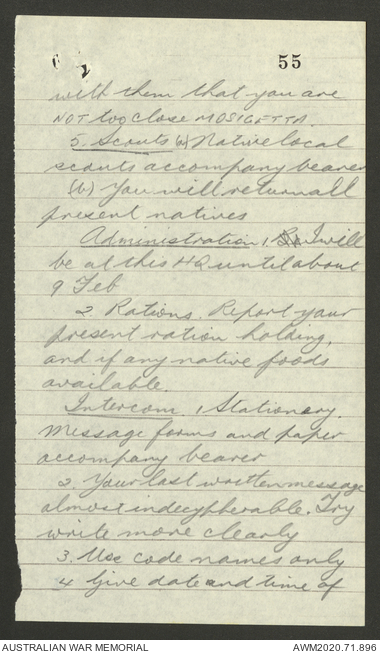 55
with them that you are
NOT too close MOSIGETTA.
5. Scouts (a) Native local
scouts accompany bearer
(b) You will return all
present natives
Administration 1. I will
be at this HQ until about
9 Feb
2. Rations. Report your
present ration holding,
and if any native foods
available.
Intercom. 1 Stationery.
Message forms and paper
accompany bearer
2. Your last written message
almost indecypherable. Try
write more clearly
3. Use code names only
4 Give date and time of
AUSTRALIAN WAR MEMORIAL
AWM2020.71.896